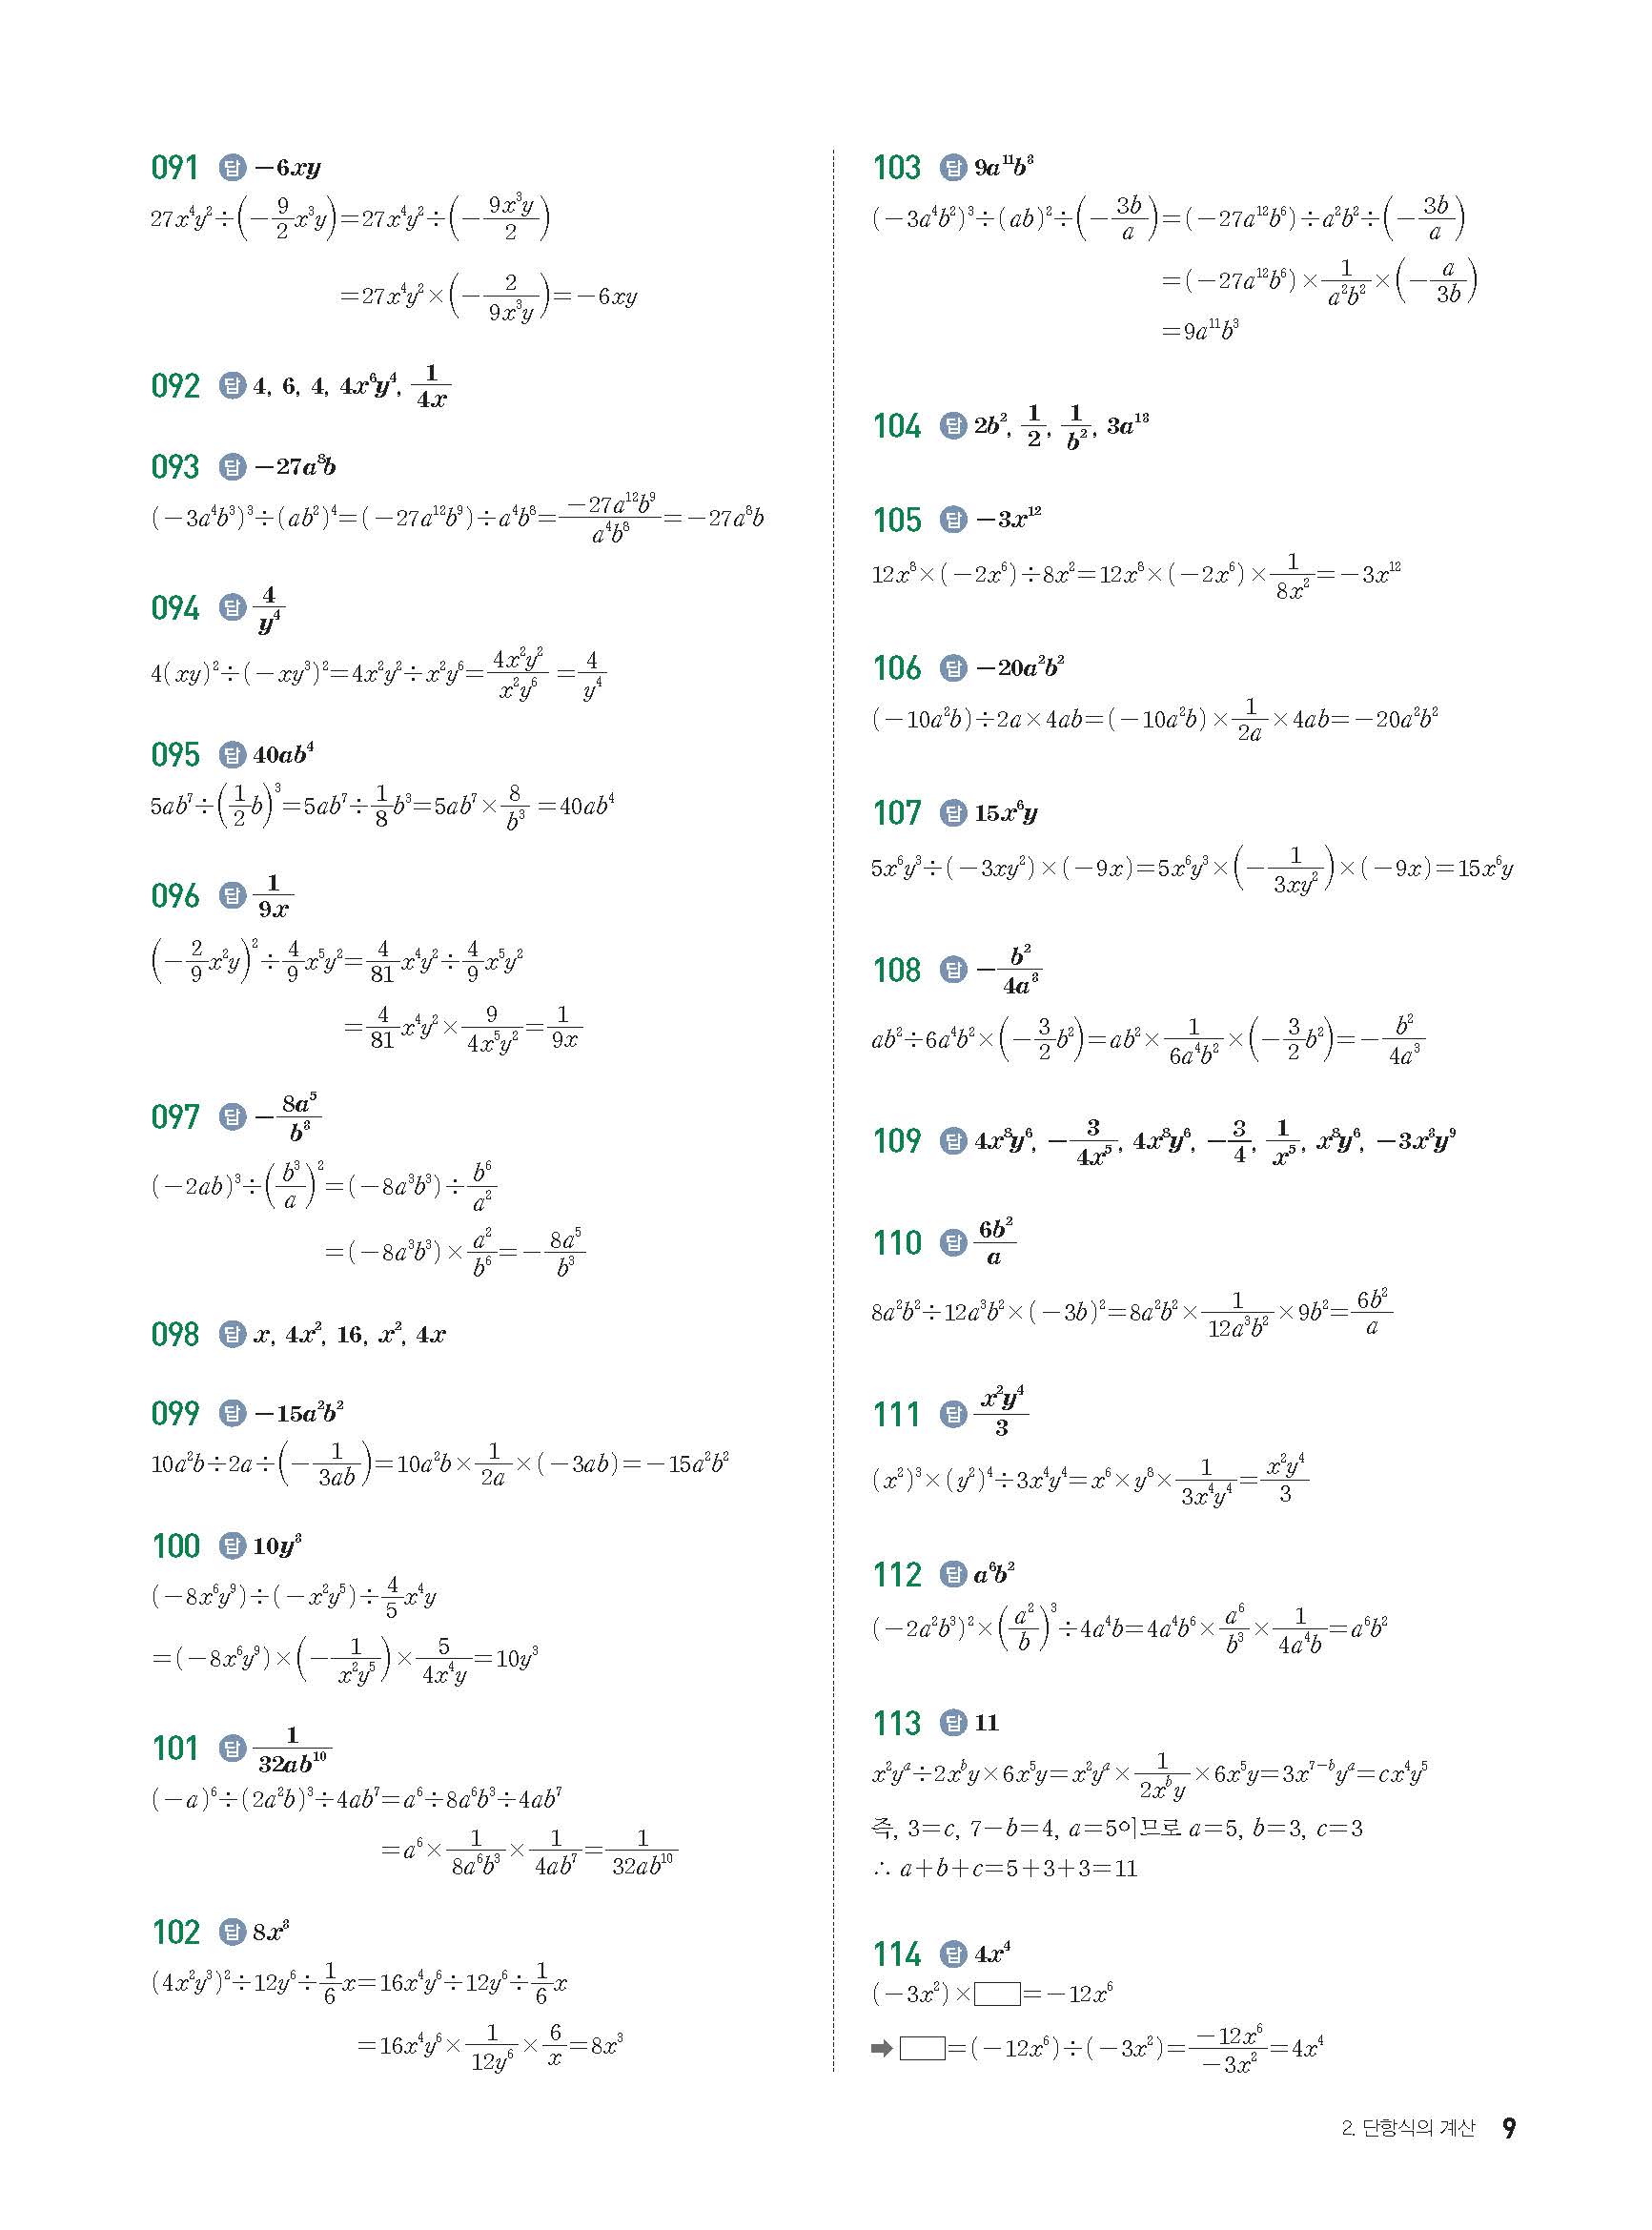 091 답 −6xy
27x⁴y²÷(−9/2 x³y)=27x⁴y²÷(−9x³y/2)
=27x⁴y²×(−2/9x³y)=−6xy
092 답 4, 6, 4, 4x⁶y⁴, 1/4x
093 답 −27a⁸b
(−3a⁴b³)³÷(ab²)⁴=(−27a¹²b⁹)÷a⁴b⁸=−27a¹²b⁹/a⁴b⁸=−27a⁸b
094 답 4/y⁴
4(xy)²÷(−xy³)²=4x²y²÷x²y⁶=4x²y²/x²y⁶=4/y⁴
095 답 40ab⁴
5ab⁷÷(1/2 b)³=5ab⁷÷1/8 b³=5ab⁷×8/b³=40ab⁴
096 답 1/9x
(−2/9 x²y)²÷4/9 x⁵y²=4/81 x⁴y²÷4/9 x⁵y²
=4/81 x⁴y²×9/4x⁵y²=1/9x
097 답 −8a⁵/b³
(−2ab)³÷(b³/a)²=(−8a³b³)÷b⁶/a²
=(−8a³b³)×a²/b⁶=−8a⁵/b³
098 답 x, 4x², 16, x², 4x
099 답 −15a²b²
10a²b÷2a÷(−1/3ab)=10a²b×1/2a×(−3ab)=−15a²b²
100 답 10y³
(−8x⁶y⁹)÷(−x²y⁵)÷4/5 x⁴y
=(−8x⁶y⁹)×(−1/x²y⁵)×5/4x⁴y=10y³
101 답 1/32ab¹⁰
(−a)⁶÷(2a²b)³÷4ab⁷=a⁶÷8a⁶b³÷4ab⁷
=a⁶×1/8a⁶b³×1/4ab⁷=1/32ab¹⁰
102 답 8x³
(4x²y³)²÷12y⁶÷1/6 x=16x⁴y⁶÷12y⁶÷1/6 x
=16x⁴y⁶×1/12y⁶×6/x=8x³
103 답 9a¹¹b³
(−3a⁴b²)³÷(ab)²÷(−3b/a)=(−27a¹²b⁶)÷a²b²÷(−3b/a)
=(−27a¹²b⁶)×1/a²b²×(−a/3b)
=9a¹¹b³
104 답 2b², 1/2, 1/b², 3a¹³
105 답 −3x¹²
12x⁸×(−2x⁶)÷8x²=12x⁸×(−2x⁶)×1/8x²=−3x¹²
106 답 −20a²b²
(−10a²b)÷2a×4ab=(−10a²b)×1/2a×4ab=−20a²b²
107 답 15x⁶y
5x⁶y³÷(−3xy²)×(−9x)=5x⁶y³×(−1/3xy²)×(−9x)=15x⁶y
108 답 −b²/4a³
ab²÷6a⁴b²×(−3/2 b²)=ab²×1/6a⁴b²×(−3/2 b²)=−b²/4a³
109 답 4x⁸y⁶, −3/4x⁵, 4x⁸y⁶, −3/4, 1/x⁵, x⁸y⁶, −3x³y⁹
110 답 6b²/a
8a²b²÷12a³b²×(−3b)²=8a²b²×1/12a³b²×9b²=6b²/a
111 답 x²y⁴/3
(x²)³×(y²)⁴÷3x⁴y⁴=x⁶×y⁸×1/3x⁴y⁴=x²y⁴/3
112 답 a⁶b²
(−2a²b³)²×(a²/b)³÷4a⁴b=4a⁴b⁶×a⁶/b³×1/4a⁴b=a⁶b²
113 답 11
x²yᵃ÷2xᵇy×6x⁵y=x²yᵃ×1/2xᵇy×6x⁵y=3x⁷⁻ᵇyᵃ=cx⁴y⁵
즉, 3=c, 7−b=4, a=5이므로 a=5, b=3, c=3
∴ a+b+c=5+3+3=11
114 답 4x⁴
(−3x²)×□=−12x⁶
➡ □=(−12x⁶)÷(−3x²)=−12x⁶/−3x²=4x⁴
2. 단항식의 계산 9